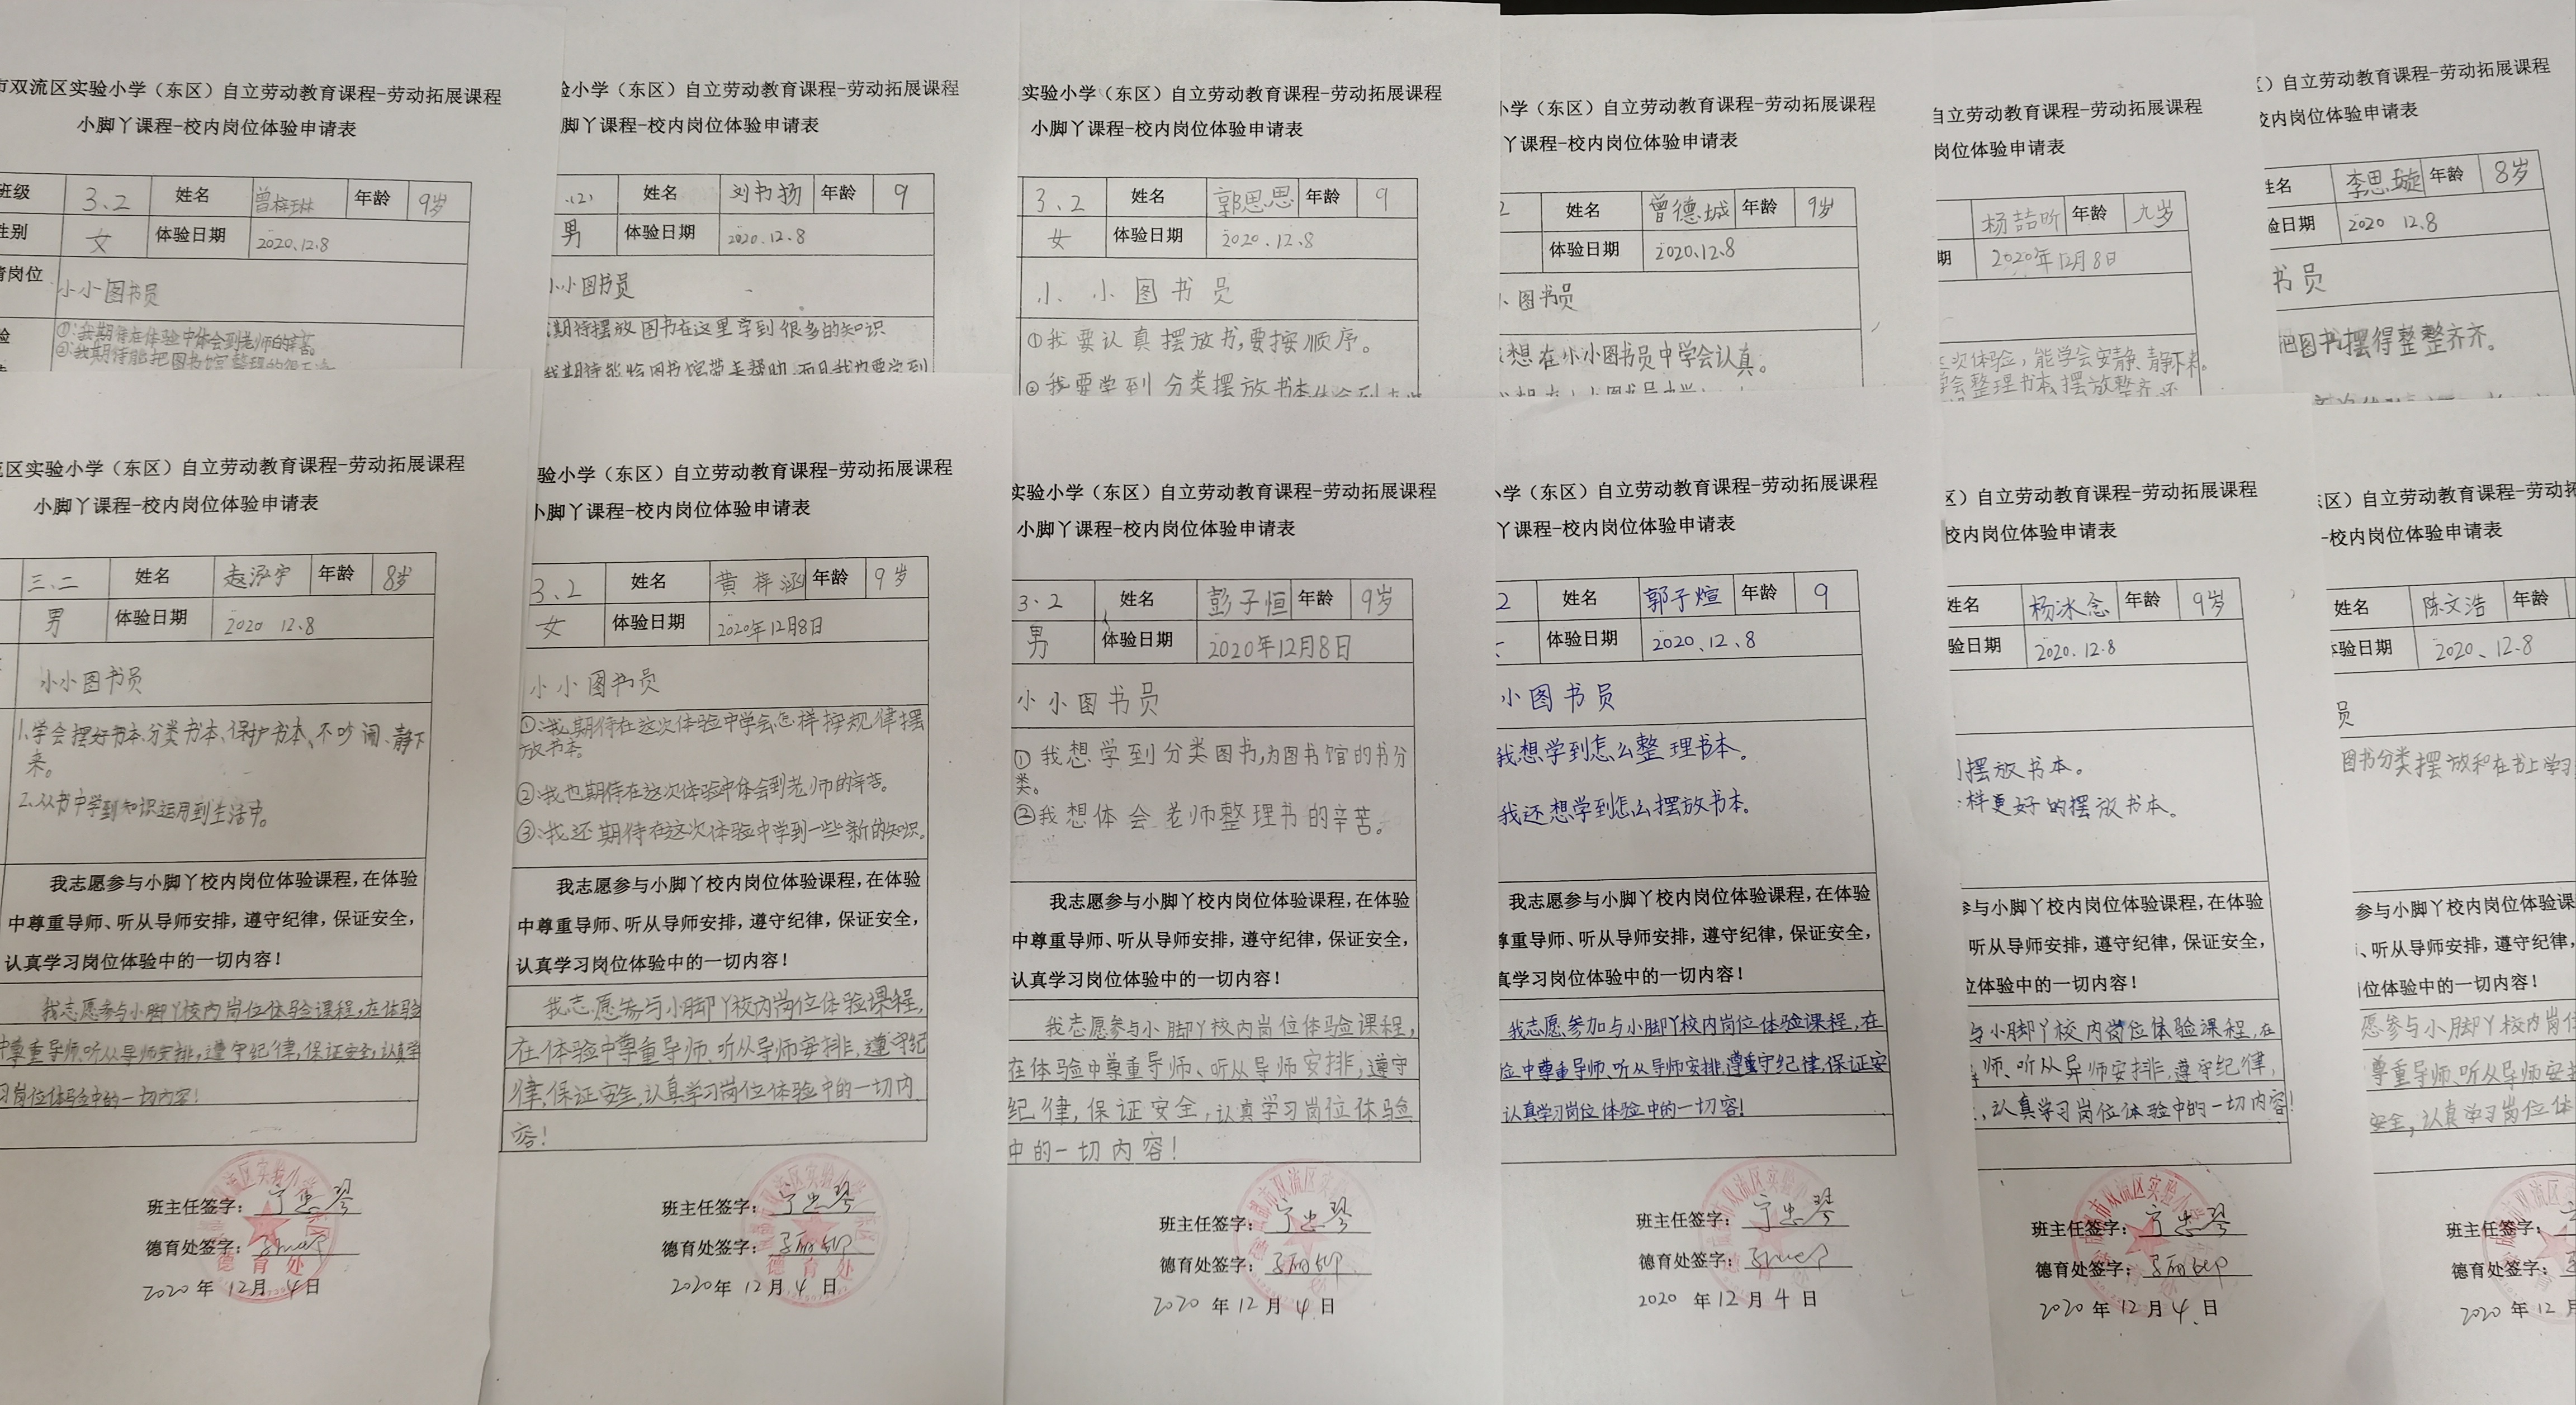 市双流区实验小学（东区）自立劳动教育课程-劳动拓展课程
小脚丫课程-校内岗位体验申请表
班级 3.2 姓名 曾梓琳 年龄 9岁
性别 女 体验日期 2020.12.8
请岗位 小小图书员
验 ①:我期待在体验中体会到老师的辛苦。
②:我期待能把图书馆整理的很干净
验小学（东区）自立劳动教育课程-劳动拓展课程
脚丫课程-校内岗位体验申请表
.(2) 姓名 刘书扬 年龄 9
男 体验日期 2020.12.8
小小图书员
期待摆放图书在这里学到很多的知识
我期待能给图书馆带去帮助,而且我也要学到
实验小学（东区）自立劳动教育课程-劳动拓展课程
小脚丫课程-校内岗位体验申请表
3.2 姓名 郭思思 年龄 9
女 体验日期 2020.12.8
小小图书员
①我要认真摆放书,要按顺序。
②我要学到分类摆放书本体会到
小学（东区）自立劳动教育课程-劳动拓展课程
丫课程-校内岗位体验申请表
2 姓名 曾德城 年龄 9岁
体验日期 2020.12.8
小图书员
想在小小图书员中学会认真。
自立劳动教育课程-劳动拓展课程
岗位体验申请表
杨喆昕 年龄 九岁
期 2020年12月8日
次体验,能学会安静、静下来。
学会整理书本,摆放整齐,还
区）自立劳动教育课程-劳动拓展课程
校内岗位体验申请表
姓名 李思璇 年龄 8岁
验日期 2020 12.8
书员
把图书摆得整整齐齐。
区实验小学（东区）自立劳动教育课程-劳动拓展课程
小脚丫课程-校内岗位体验申请表
三.二 姓名 赵泓宇 年龄 8岁
男 体验日期 2020 12.8
小小图书员
1.学会摆好书本、分类书本、保护书本、不吵闹、静下
来。
2.从书中学到知识运用到生活中。
我志愿参与小脚丫校内岗位体验课程,在体验
中尊重导师、听从导师安排,遵守纪律,保证安全,
认真学习岗位体验中的一切内容!
我志愿参与小脚丫校内岗位体验课程,在体验
中尊重导师、听从导师安排,遵守纪律,保证安全,认真学
习岗位体验中的一切内容!
班主任签字: 宁忠琴
德育处签字:
德育处
2020年12月4日
验小学（东区）自立劳动教育课程-劳动拓展课程
小脚丫课程-校内岗位体验申请表
3.2 姓名 黄梓涵 年龄 9岁
女 体验日期 2020年12月8日
小小图书员
①:我期待在这次体验中学会怎样按规律摆
放书本。
②:我也期待在这次体验中体会到老师的辛苦。
③:我还期待在这次体验中学到一些新的知识。
我志愿参与小脚丫校内岗位体验课程,在体验
中尊重导师、听从导师安排,遵守纪律,保证安全,
认真学习岗位体验中的一切内容!
我志愿参与小脚丫校内岗位体验课程,
在体验中尊重导师、听从导师安排,遵守纪
律,保证安全,认真学习岗位体验中的一切内
容!
班主任签字: 宁忠琴
德育处签字:
德育处
2020年12月4日
实验小学（东区）自立劳动教育课程-劳动拓展课程
小脚丫课程-校内岗位体验申请表
3.2 姓名 彭子恒 年龄 9岁
男 体验日期 2020年12月8日
小小图书员
①我想学到分类图书,为图书馆的书分
类。
②我想体会老师整理书的辛苦。
我志愿参与小脚丫校内岗位体验课程,在体验
中尊重导师、听从导师安排,遵守纪律,保证安全,
认真学习岗位体验中的一切内容!
我志愿参与小脚丫校内岗位体验课程,
在体验中尊重导师、听从导师安排,遵守
纪律,保证安全,认真学习岗位体验
中的一切内容!
班主任签字: 宁忠琴
德育处签字:
2020年12月4日
小学（东区）自立劳动教育课程-劳动拓展课程
丫课程-校内岗位体验申请表
2 姓名 郭子煊 年龄 9
体验日期 2020.12.8
小图书员
我想学到怎么整理书本。
我还想学到怎么摆放书本。
我志愿参与小脚丫校内岗位体验课程,在体验
尊重导师、听从导师安排,遵守纪律,保证安全,
真学习岗位体验中的一切内容!
我志愿参加与小脚丫校内岗位体验课程,在
验中尊重导师、听从导师安排,遵守纪律,保证安
认真学习岗位体验中的一切容!
班主任签字: 宁忠琴
德育处签字:
2020年12月4日
区）自立劳动教育课程-劳动拓展课程
校内岗位体验申请表
姓名 杨冰念 年龄 9岁
验日期 2020.12.8
摆放书本。
样更好的摆放书本。
参与小脚丫校内岗位体验课程,在体验
听从导师安排,遵守纪律,保证安全,
位体验中的一切内容!
与小脚丫校内岗位体验课程,在
师、听从导师安排,遵守纪律,
、认真学习岗位体验中的一切内容!
班主任签字: 宁忠琴
德育处签字:
2020年12月4日
东区）自立劳动教育课程-劳动拓
-校内岗位体验申请表
姓名 陈文浩 年龄
验日期 2020、12.8
员
图书分类摆放和在书上学习
参与小脚丫校内岗位体验课
、听从导师安排,遵守纪律,
位体验中的一切内容!
愿参与小脚丫校内岗位
尊重导师、听从导师安
安全,认真学习岗位体
班主任签字:
德育处签字:
2020年12月